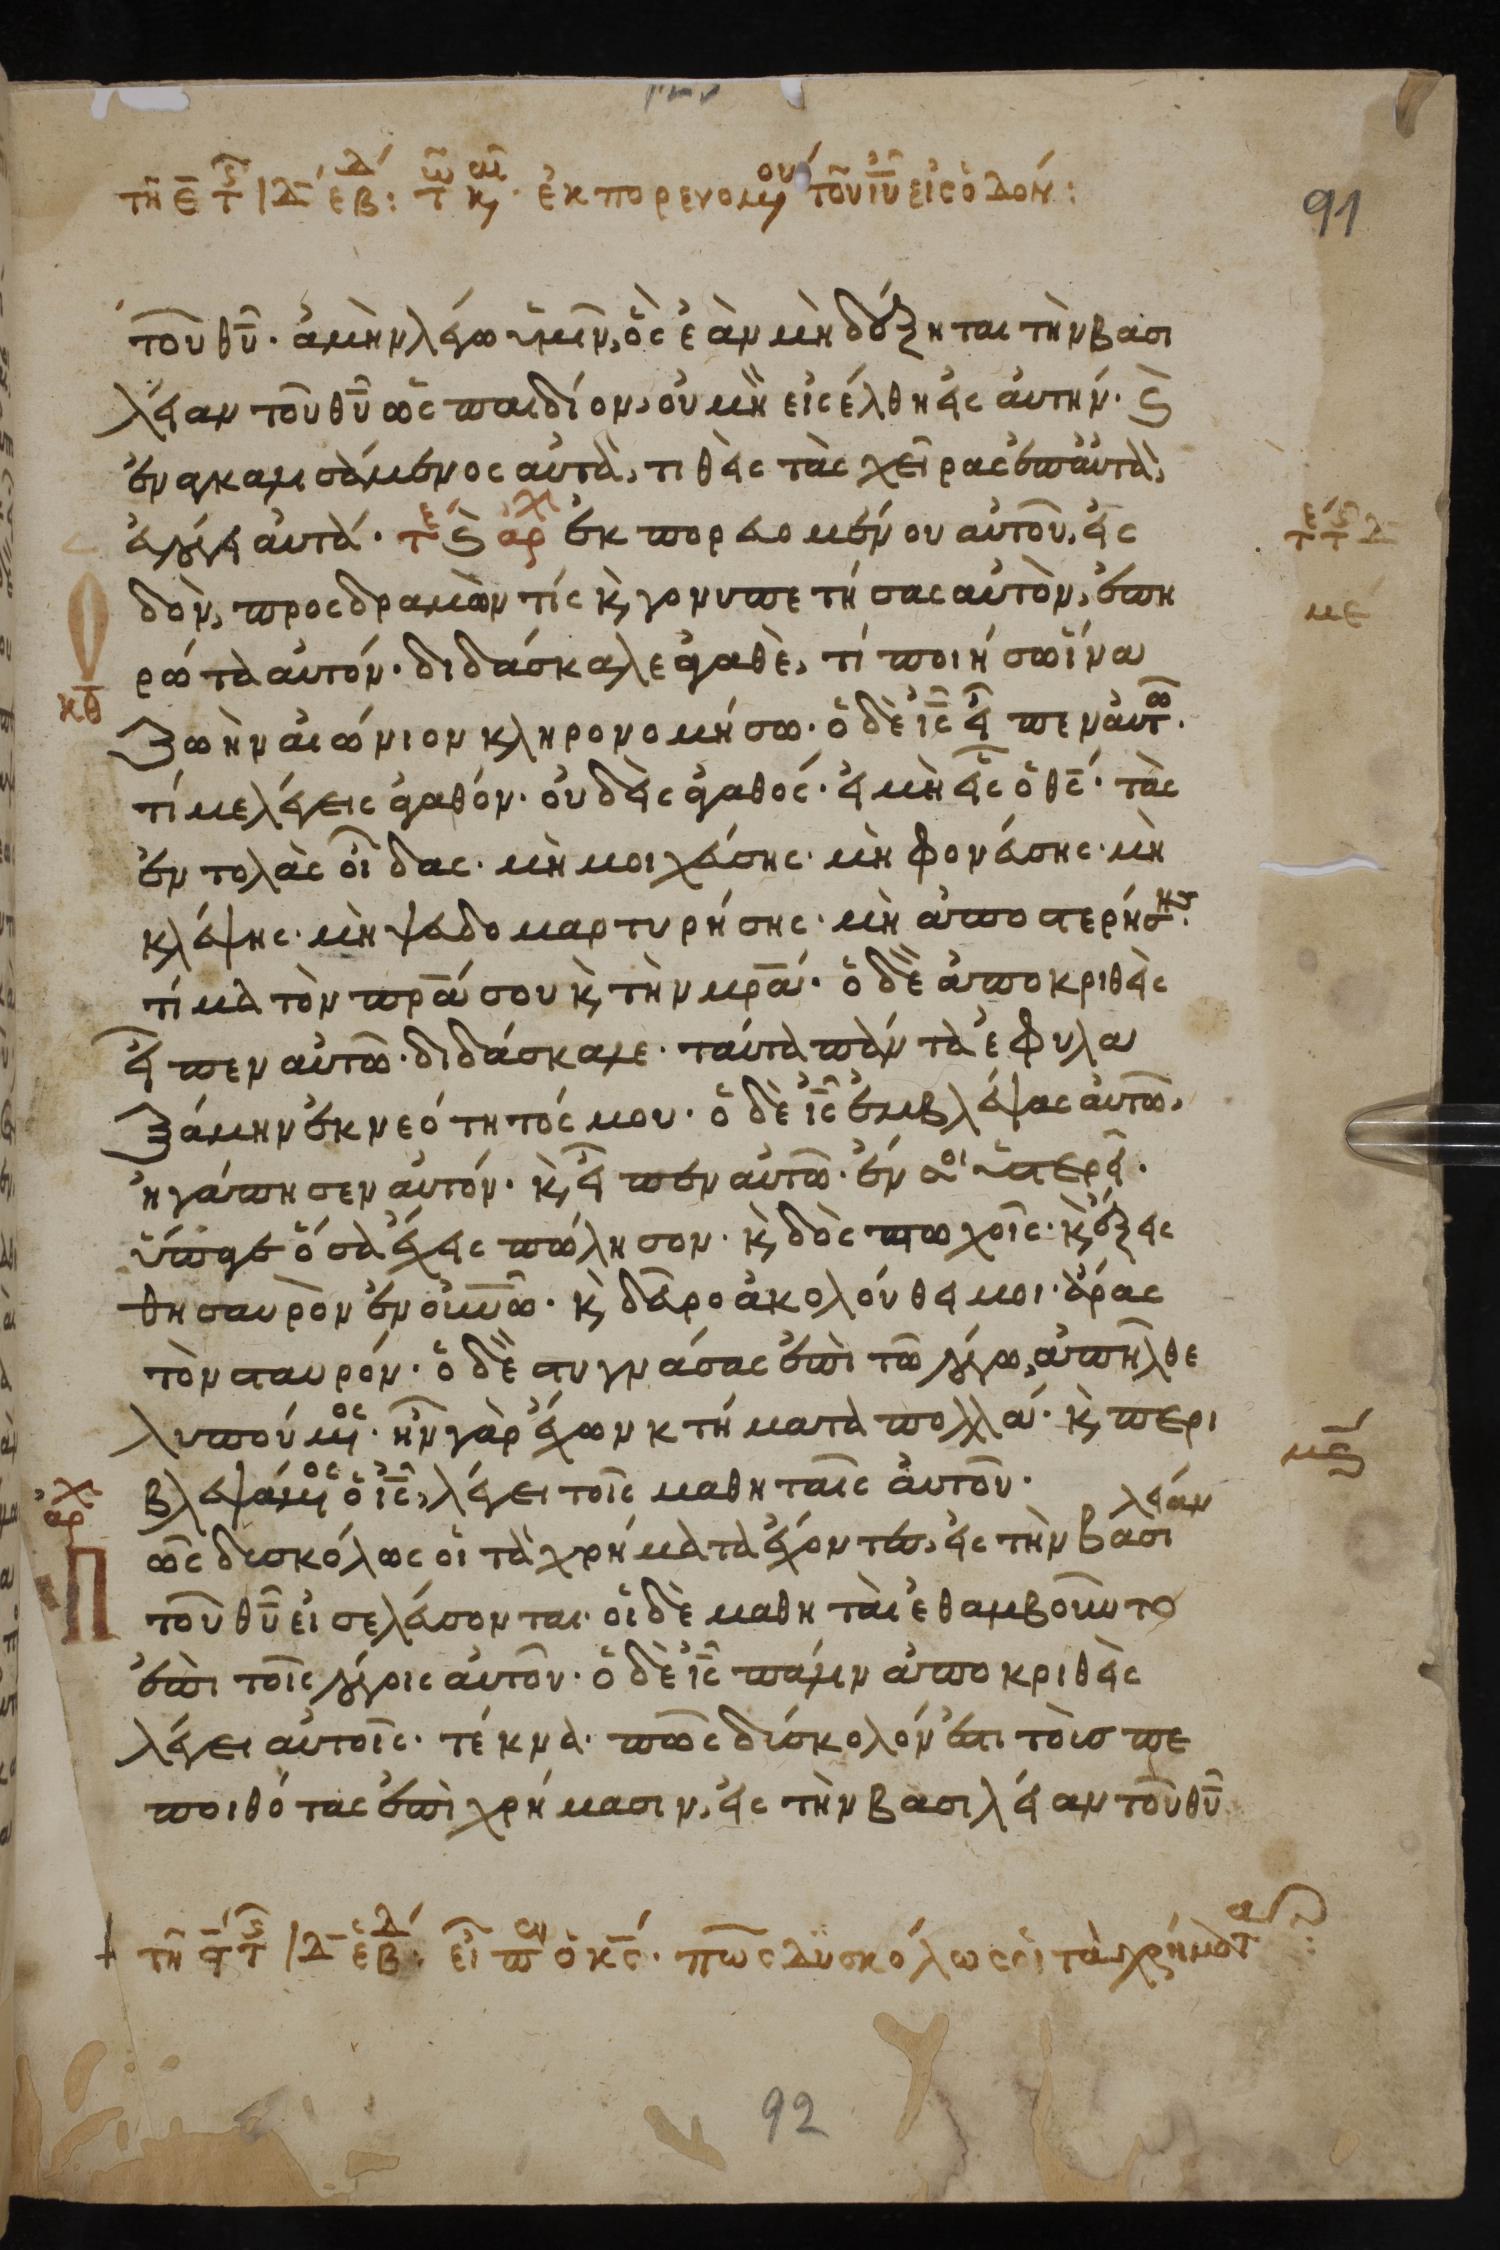 τῆ ε̄ τ̄ ιδ ἑβ: τῶ κ, ἐκπορευομ ου τοῦ ιῦ εἰς ὁδόν:
91
τοῦ θῦ. ἀμὴν λέγω ὑμῖν, ὃς ἐὰν μὴ δέξηται τὴν βασι
λείαν τοῦ θῦ ὡς παιδίον, οὐ μὴ εἰσέλθη εἰς αὐτήν. ϛ
ἐναγκαλισάμενος αὐτὰ, τιθεὶς τὰς χεῖρας ἐπ αὐτὰ,
εὐλόγει αὐτά. τε ϛ ἀρχ ἐκπορευομένου αὐτοῦ, εἰς
τε τϛ Δ
με
δὸν, προςδραμὼν τίς κ, γονυπετήσας αὐτὸν, ἐπη
ρώτα αὐτόν. διδάσκαλε ἀγαθὲ, τί ποιήσω ἵνα
κθ
ζωὴν αἰώνιον κληρονομήσω. ὁ δὲ ις εἶπεν αὐτῶ.
τί με λέγεις ἀγαθόν. οὐδεὶς ἀγαθός. εἰ μὴ εἷς ὁ θς. τὰς
ἐντολὰς οἶδας. μὴ μοιχεύσης. μὴ φονεύσης. μὴ
κλέψης. μὴ ψευδομαρτυρήσης. μὴ ἀποστερήσης.
τίμα τὸν πρα σου κ, τὴν μρα. ὁ δὲ ἀποκριθεὶς
εἶπεν αὐτῶ. διδάσκαλε. ταῦτα πάντα ἐφυλα
ξάμην ἐκ νεότητός μου. ὁ δὲ ις ἐμβλέψας αὐτῶ,
ἠγάπησεν αὐτόν. κ, εἶπεν αὐτῶ. ἕν σοι ὑστερεῖ.
ὕπαγε ὅσα ἔχεις πώλησον. κ, δὸς πτωχοῖς. κ, ἕξεις
θησαυρὸν ἐν οὐνῶ. κ, δεῦρο ἀκολούθει μοι. ἄρας
τὸν σταυρόν. ὁ δὲ στυγνάσας ἐπὶ τῶ λόγω, ἀπῆλθε
λυπούμος. ἦν γὰρ ἔχων κτήματα πολλά. κ, περι
μϛ
βλεψάμος ὁ ις, λέγει τοῖς μαθηταῖς αὐτοῦ.
ἀρχ
πῶς δισκόλως οἱ τὰ χρήματα ἔχοντες, εἰς τὴν βασι
λείαν
τοῦ θῦ εἰσελεύσονται. οἱ δὲ μαθηταὶ ἐθαμβοῦντο
ἐπὶ τοῖς λόγοις αὐτοῦ. ὁ δὲ ις πάλιν ἀποκριθεὶς
λέγει αὐτοῖς. τέκνα. πῶς δίσκολόν ἐστι τοὶσ πε
ποιθότας ἐπὶ χρήμασιν, εἰς τὴν βασιλείαν τοῦ θῦ
τῆ ϛ τ ιδ ἑβ: εἶπεν ὁ κς. πῶς δυσκόλως οἱ τὰ χρήματα
92